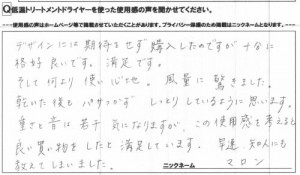 Q低温トリートメントドライヤーを使った使用感の声を聞かせてください。
使用感の声はホームページ等で掲載させていただくことがあります。プライバシー保護のため掲載はニックネームとなります。
デザインには期待をせず購入したのですが十分に
格好良いです。満足です。
そして何より使い心地。風量に驚きました。
乾いた後もパサつかず しっとりしているように思います。
重さと音は若干気になりますが、この使用感を考えると
良い買い物をしたと満足しています。早速、知人にも
教えてしまいました。
ニックネーム マロン